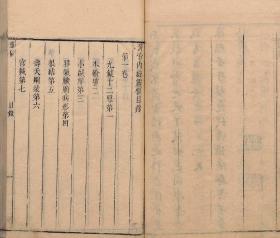 黃帝內經靈樞目錄
第一卷
九鍼十二原第一
本輸第二
小鍼解第三
邪氣臟腑病形第四
根結第五
壽夭剛柔第六
官鍼第七
目錄